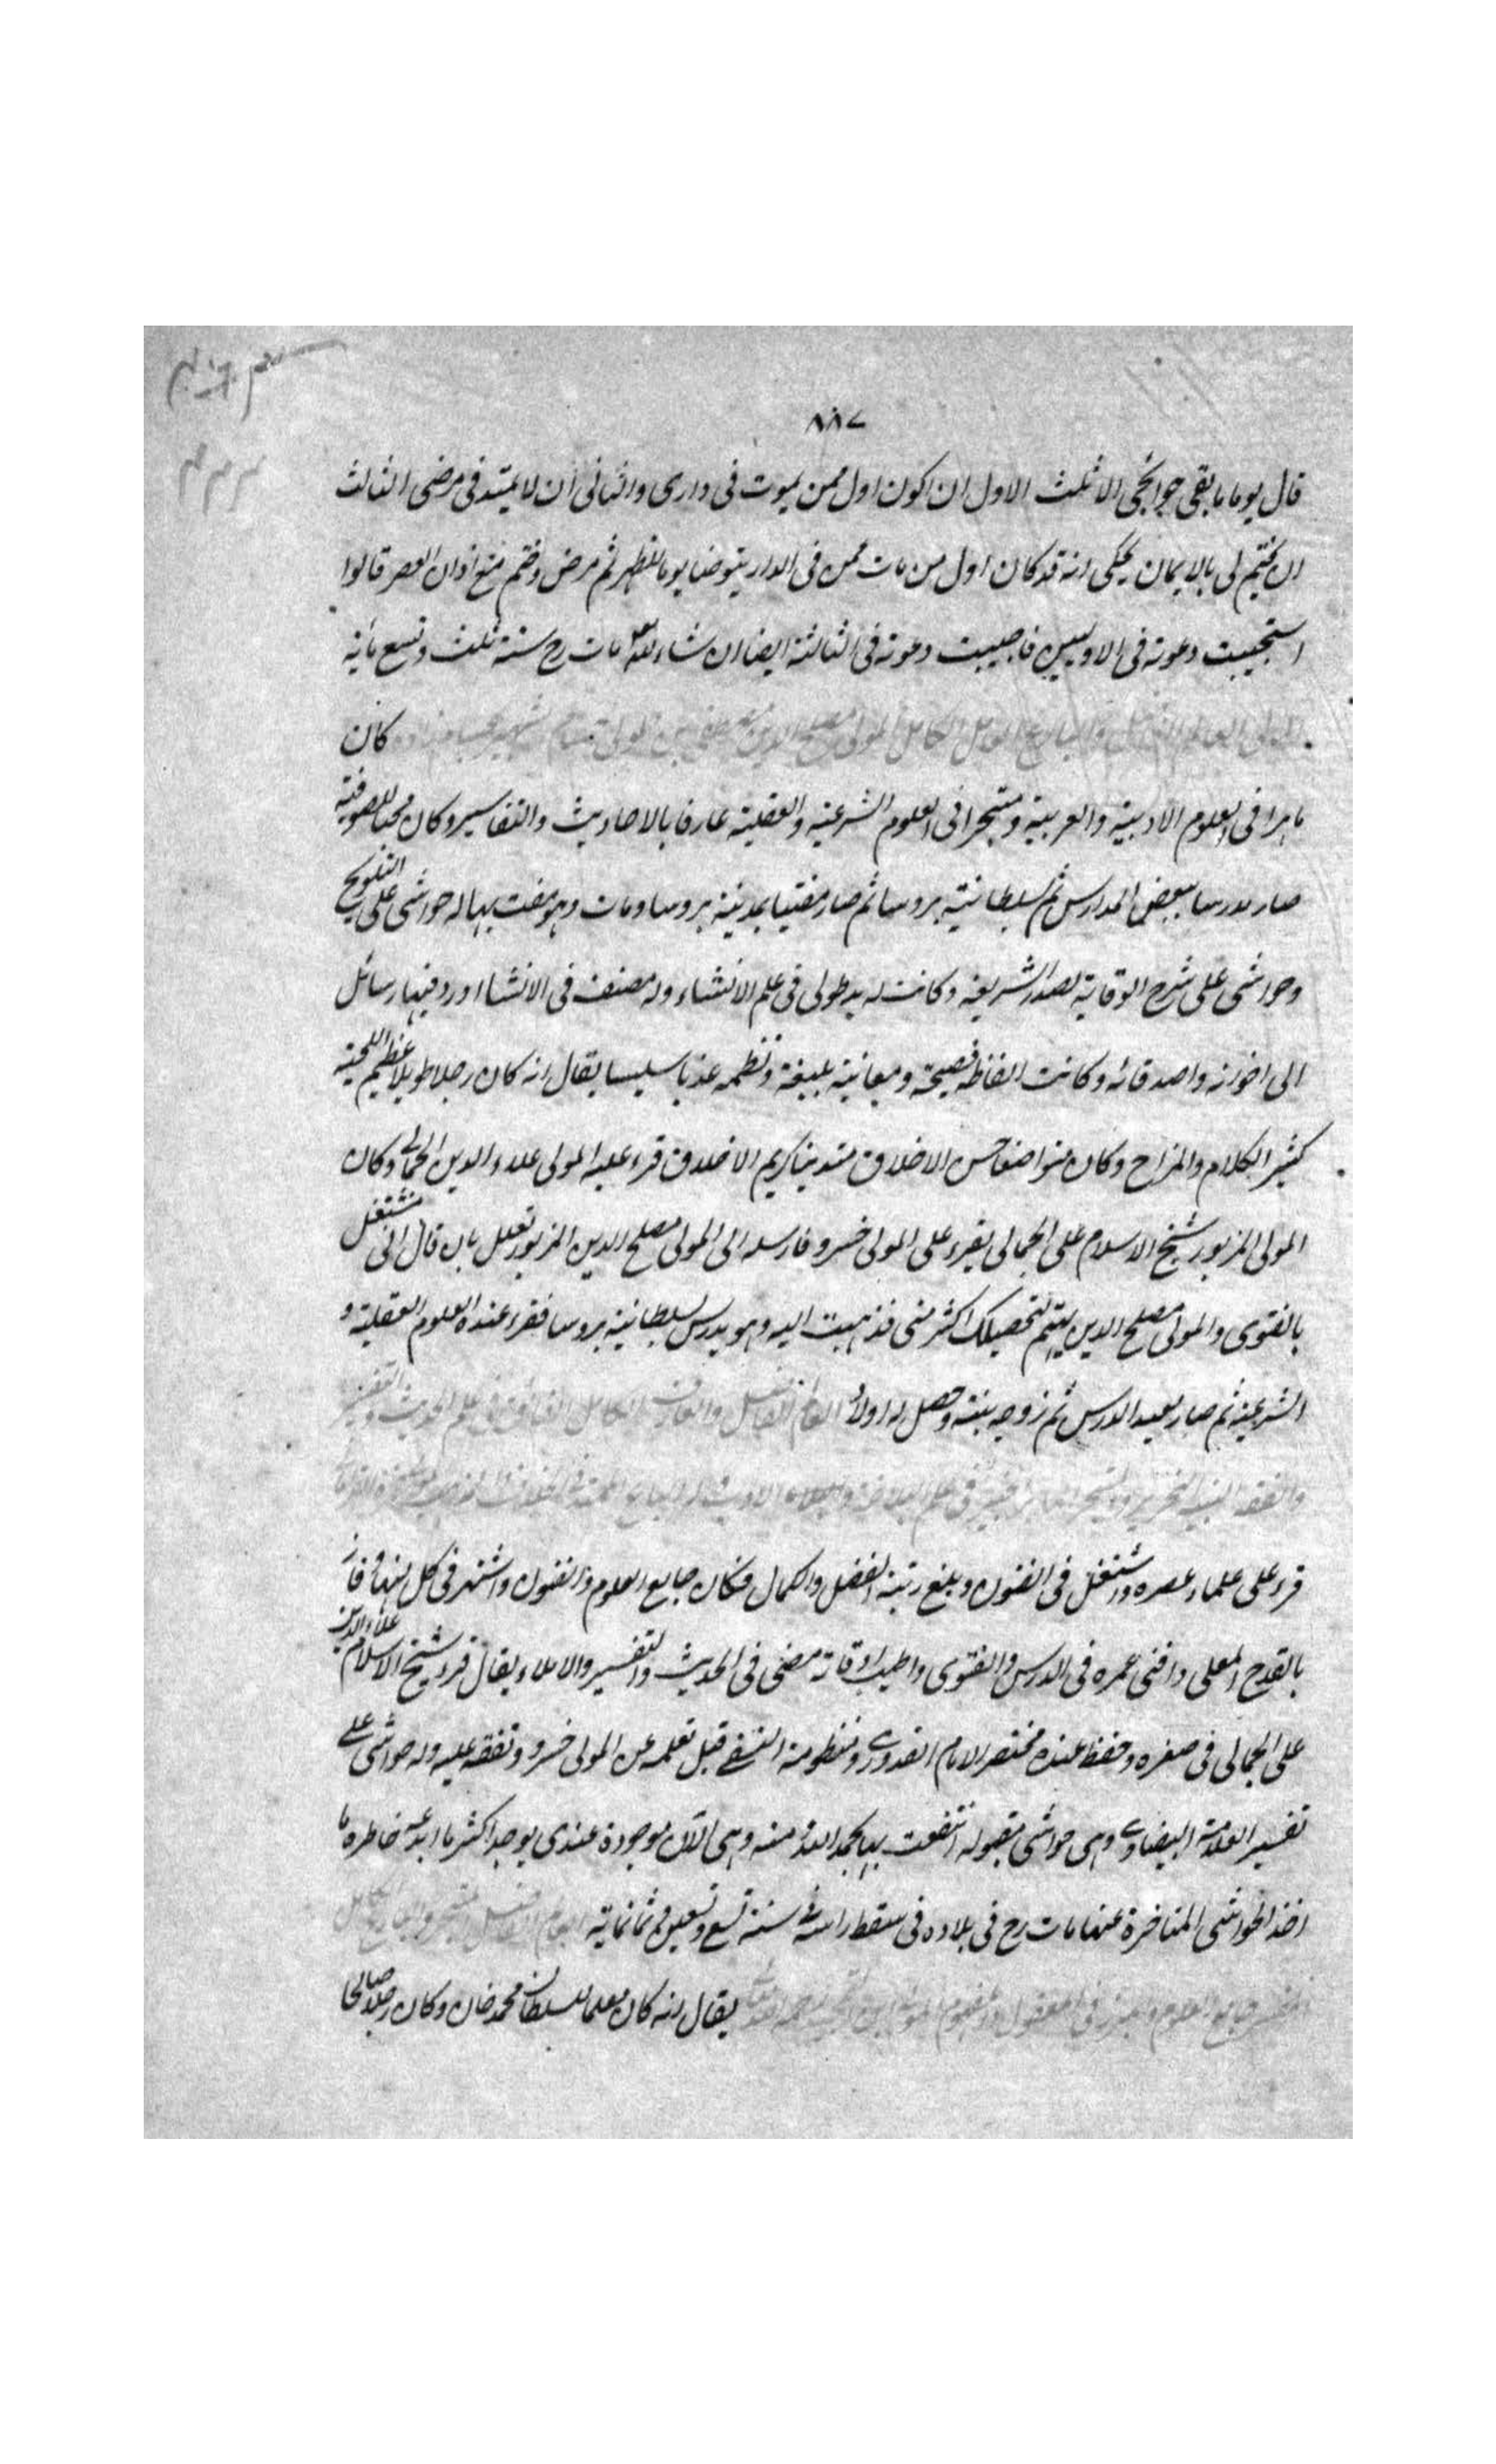 ٨٨٧
قال يوما ما بقى حوائجى الا ثلث الاول ان اكون اول ممن يموت فى دارى والثانى ان لا يمتد فى مرضى الثالث
ان يختم لى بالايمان يحكى انه قد كان اول من مات ممن فى الدار يتوضا يوما للظهر ثم مرض وختم مع اذان العصر قالوا
استجيبت دعوته فى الاوليين فاجيبت دعوته فى الثالثة ايضا ان شاء الله مات رح سنة ثلث وتسع مائة
المولى العالم الفاضل الكامل المولى مصلح الدين مصطفى بن المولى حسام الشهير كان
ماهرا فى العلوم الادبية والعربية ومتبحرا فى العلوم الشرعية والعقلية عارفا بالاحاديث والتفاسير وكان محبا للصوفية
صار مدرسا ببعض المدارس ثم بسلطانية بروسا ثم صار مفتيا بمدينة بروسا ومات وهو مفت بها له حواشى على التلويح
وحواشى على شرح الوقاية لصدر الشريعة وكانت له يد طولى فى علم الانشاء وله مصنف فى الانشا اورد فيها رسائل
الى اخوانه واصدقائه وكانت الفاظه فصيحة ومعانيه بليغة ونظمه عذبا سليسا يقال انه كان رجلا طويلا عظيم اللحية
كثير الكلام والمزاح وكان متواضعا حسن الاخلاق متدينا كريم الاخلاق قرء عليه المولى علاء الدين الجمالى وكان
المولى المزبور شيخ الاسلام على الجمالى يقرء على المولى خسرو فارسله الى المولى مصلح الدين المزبور تعلل بان قال انى مشتغل
بالفتوى والمولى مصلح الدين يهتم لتحصيلك اكثر منى فذهبت اليه وهو يدرس بسلطانية بروسا فقرء عنده العلوم العقلية و
الشرعية ثم صار معيد الدرس ثم زوجه بنته وحصل له اولاد العالم الفاضل والعارف الكامل فى علم الحديث والتفسير
والفقه فى علم البلاغة
قرء على علماء عصره واشتغل فى الفنون وبلغ رتبة الفضل والكمال فكان جامع العلوم والفنون واشتهر فى كل منها وفاز
بالقدح المعلى وافنى عمره فى الدرس والفتوى واطيب اوقاته مضى فى الحديث والتفسير والاملاء يقال قرء شيخ الاسلام علاء الدين
على الجمالى فى صغره وحفظ عنده مختصر الامام القدورى ومنظومة النسفى قبل تعلمه عن المولى خسرو وتفقه عليه وله حواشى على
تفسير العلامة البيضاوى وهى حواشى مقبولة انتفعت بها بحمد الله منه وهى الآن موجودة عندى يوجد اكثر ما ابدعه خاطره ما
اخذ الحواشى المتاخرة عنها مات رح فى بلاده فى سقط راسه فى سنة تسع وتسعين وثمانماية العالم الفاضل
جامع العلوم فى المعقول والمفهوم المولى يقال انه كان معلما للسلطان محمد خان وكان رجلا صالحا